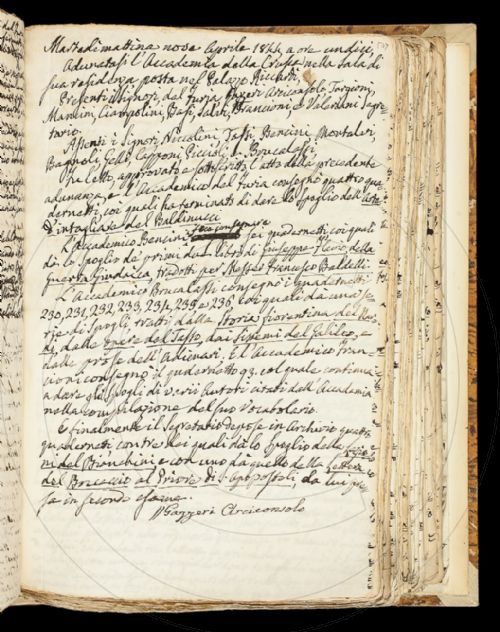 Martedi mattina nove Aprile 1844 a ore undici,
Adunatasi l'Accademia della Crusca nella Sala di
sua residenza posta nel Palazzo Riccardi,
Presenti i Signori, del Furia, Gazzeri Arciconsolo, Targioni,
Manuzzi, Ciampolini, Basi, Salvi, Francioni, e Valeriani Segre-
tario.
Assenti i Signori Niccolini, Tassi, Bencini, Montalvi,
Bagnoli, Gelli, Capponi, Piccioli, e Brucalassi,
Fu letto, approvato e sottoscritto l'atto della precedente
adunanza, e l'Accademico del Furia consegnò quattro qua-
dernetti, coi quali ha terminati di dare lo spoglio dell'Arte
d'intagliare del Baldinucci
L'Accademico Bencini fece consegnare sei quadernetti coi quali
dà lo spoglio de' primi due libri di Giuseppe Flavio della
Guerra Giudaica tradotti per Messer Francesco Baldelli.
L'Accademico Brucalassi consegnò i Quadernetti
230, 231, 232, 233, 234, 235 e 236 coi quali dà una se-
rie di spogli, tratti dalla Storia fiorentina del
dalle opere del Tasso, dai Sistemi del Galileo, e
dalle prose dell'Adimari. E l'Accademico Fran-
cioni consegnò il quadernetto 93. col quale continua
a dare gli spogli di varii Autori citati dall'Accademia
nella compilazione del suo Vocabolario.
E finalmente il Segretario depose in Archivio quattro
quadernetti con tre dei quali dà lo spoglio delle
del Bianchini e con uno dà quello della Lettera
del Boccaccio al Priore di S. Apostoli, da lui pre-
sa in secondo esame.
Gazzeri Arciconsolo